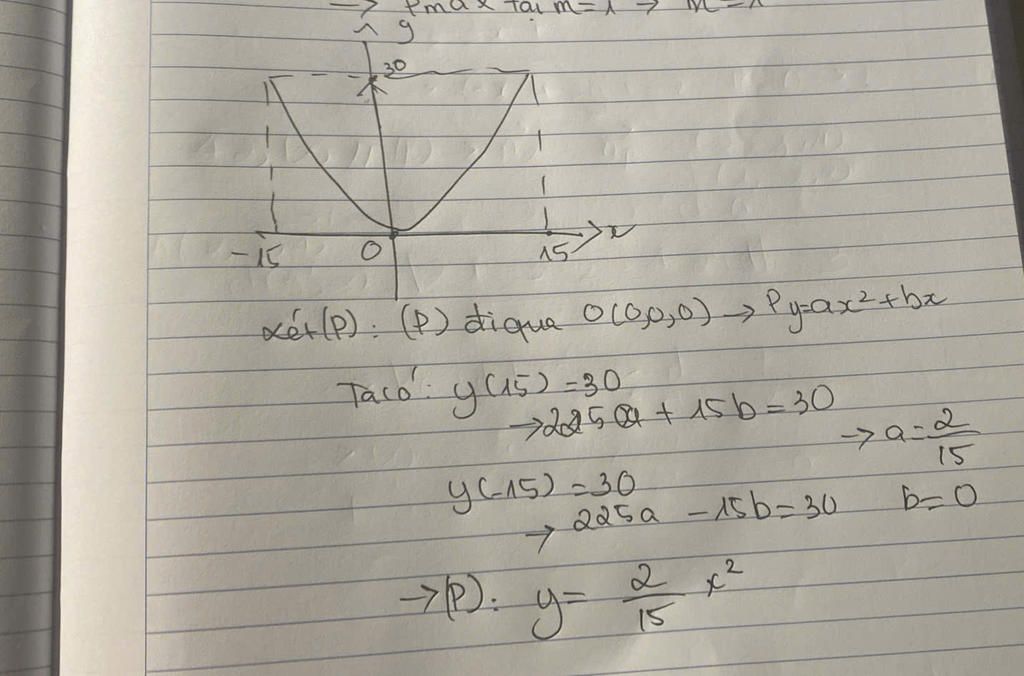 → Pmax tại m=1 →
y
30
-15 0 15 x
xét (P): (P) đi qua O(0,0,0) → P y=ax²+bx
Ta có: y(15) = 30
→ 225a + 15b = 30
→ a = 2/15
y(-15) = 30
→ 225a - 15b = 30 b = 0
→ (P): y = 2/15 x²